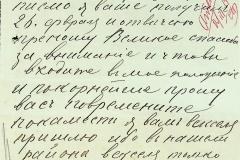 письмо я ваше получил
26. февраля и отвечаю
прошому Великое спасибо
за внимание и чтобы
входите в мое положение
и покорнейше прошу
вас повремените
покамести я вам векселя
пришлю ибо в нашем
района векселя только